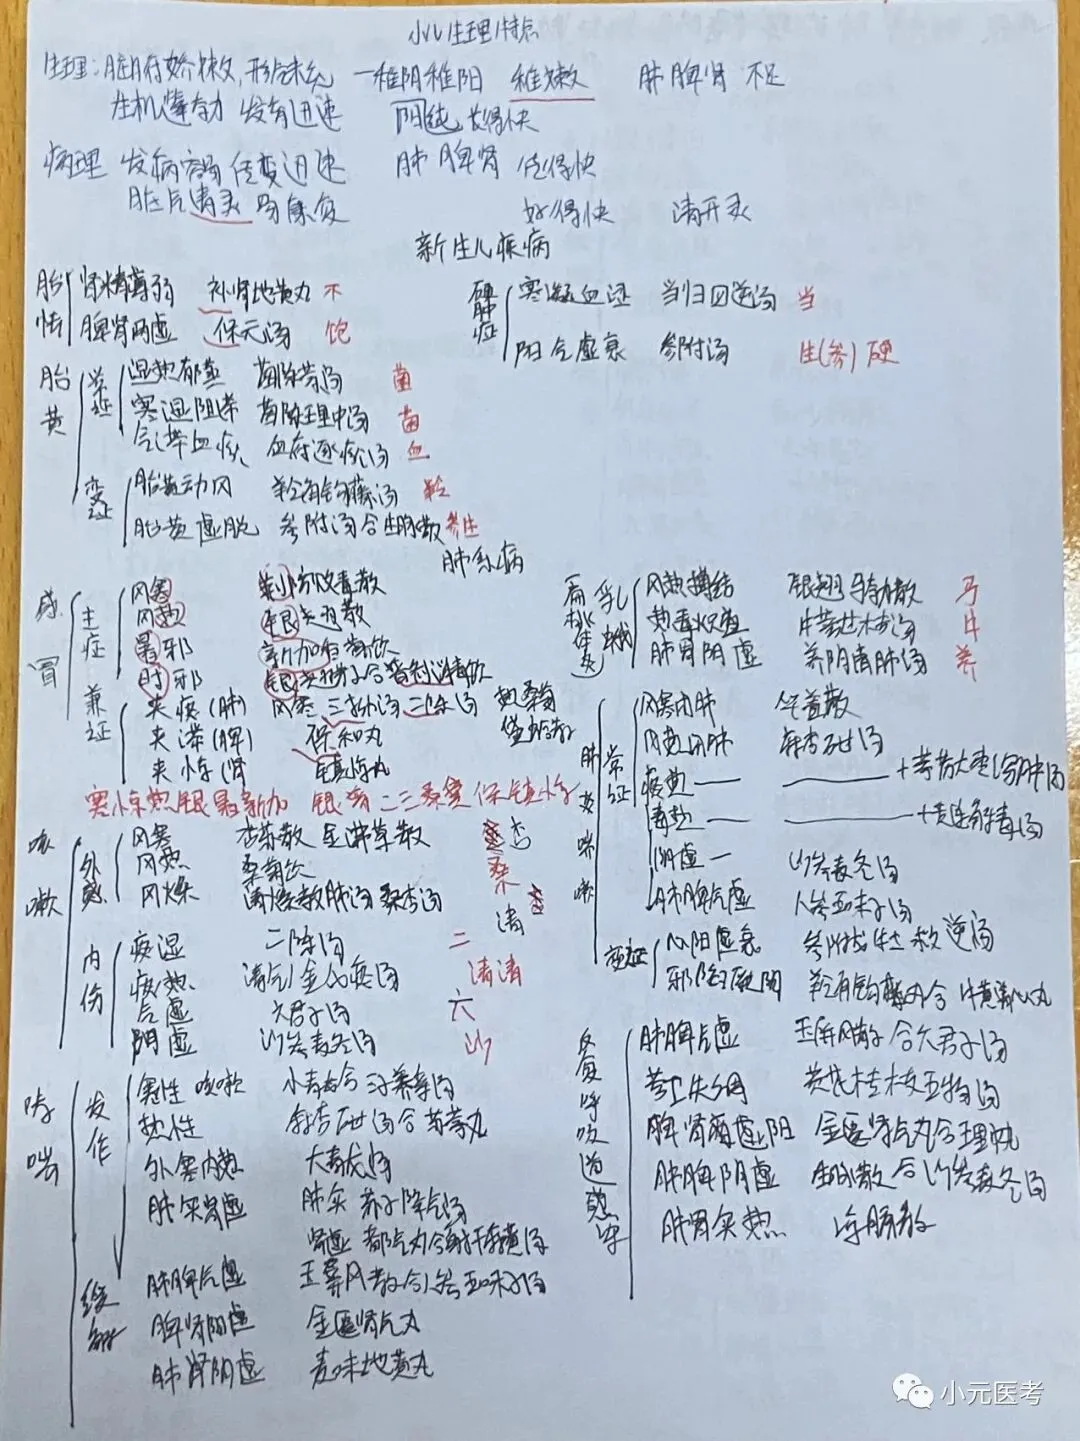 小儿生理特点
生理：脏腑娇嫩，形气未充 — 稚阴稚阳 稚嫩 肺脾肾 不足
生机蓬勃 发育迅速 阳纯 长得快
病理 发病容易 传变迅速 肺 脾 肾 传得快
脏气清灵 易康复 好得快 清开灵
新生儿疾病
胎怯
肾精薄弱 补肾地黄丸 不
脾肾两虚 保元汤 饱
硬肿症
寒凝血涩 当归四逆汤 当
阳气虚衰 参附汤 生(参)硬
胎黄
常证
湿热郁蒸 茵陈蒿汤 茵
寒湿阻滞 茵陈理中汤 茵
气滞血瘀 血府逐瘀汤 血
变证
胎黄动风 羚角钩藤汤 羚
胎黄虚脱 参附汤合生脉散 参生
肺系病
感冒
主症
风寒 荆防败毒散
风热 银翘散
暑邪 新加香薷饮
时邪 银翘散合普济消毒饮
兼证
夹痰(肺) 风寒 三拗汤 二陈汤 热桑菊
夹滞(脾) 保和丸
夹惊(肾 镇惊丸
寒惊热银暑新加 银普 二三桑黛保镇惊
乳蛾
风热搏结 银翘马勃散 马
热毒炽盛 牛蒡甘桔汤 牛
肺肾阴虚 养阴清肺汤 养
肺炎喘嗽
常证
风寒闭肺 华盖散
风热闭肺 麻杏石甘汤
痰热 — —— +葶苈大枣泻肺汤
毒热 — —— +黄连解毒汤
阴虚 — 沙参麦冬汤
肺脾气虚 人参五味子汤
变证
心阳虚衰 参附龙牡救逆汤
邪陷厥阴 羚角钩藤汤合 牛黄清心丸
咳嗽
外感
风寒 杏苏散 金沸草散 杏
风热 桑菊饮 桑
风燥 清燥救肺汤 桑杏汤 清
内伤
痰湿 二陈汤 二
痰热 清气化痰汤 清清
气虚 六君子汤 六
阴虚 沙参麦冬汤 沙
哮喘
发作
寒性 咳嗽 小青龙合 三子养亲汤
热性 麻杏石甘汤合 苏葶丸
外寒内热 大青龙汤
肺实肾虚 肺实 苏子降气汤
肾虚 都气丸合射干麻黄汤
缓解
肺脾气虚 玉屏风散合人参五味子汤
脾肾阳虚 金匮肾气丸
肺肾阴虚 麦味地黄丸
反复呼吸道感染
肺脾气虚 玉屏风散合六君子汤
营卫失调 黄芪桂枝五物汤
脾肾两虚阳 金匮肾气丸合理中丸
肺脾阴虚 生脉散合沙参麦冬汤
肺胃实热 凉膈散
小元医考